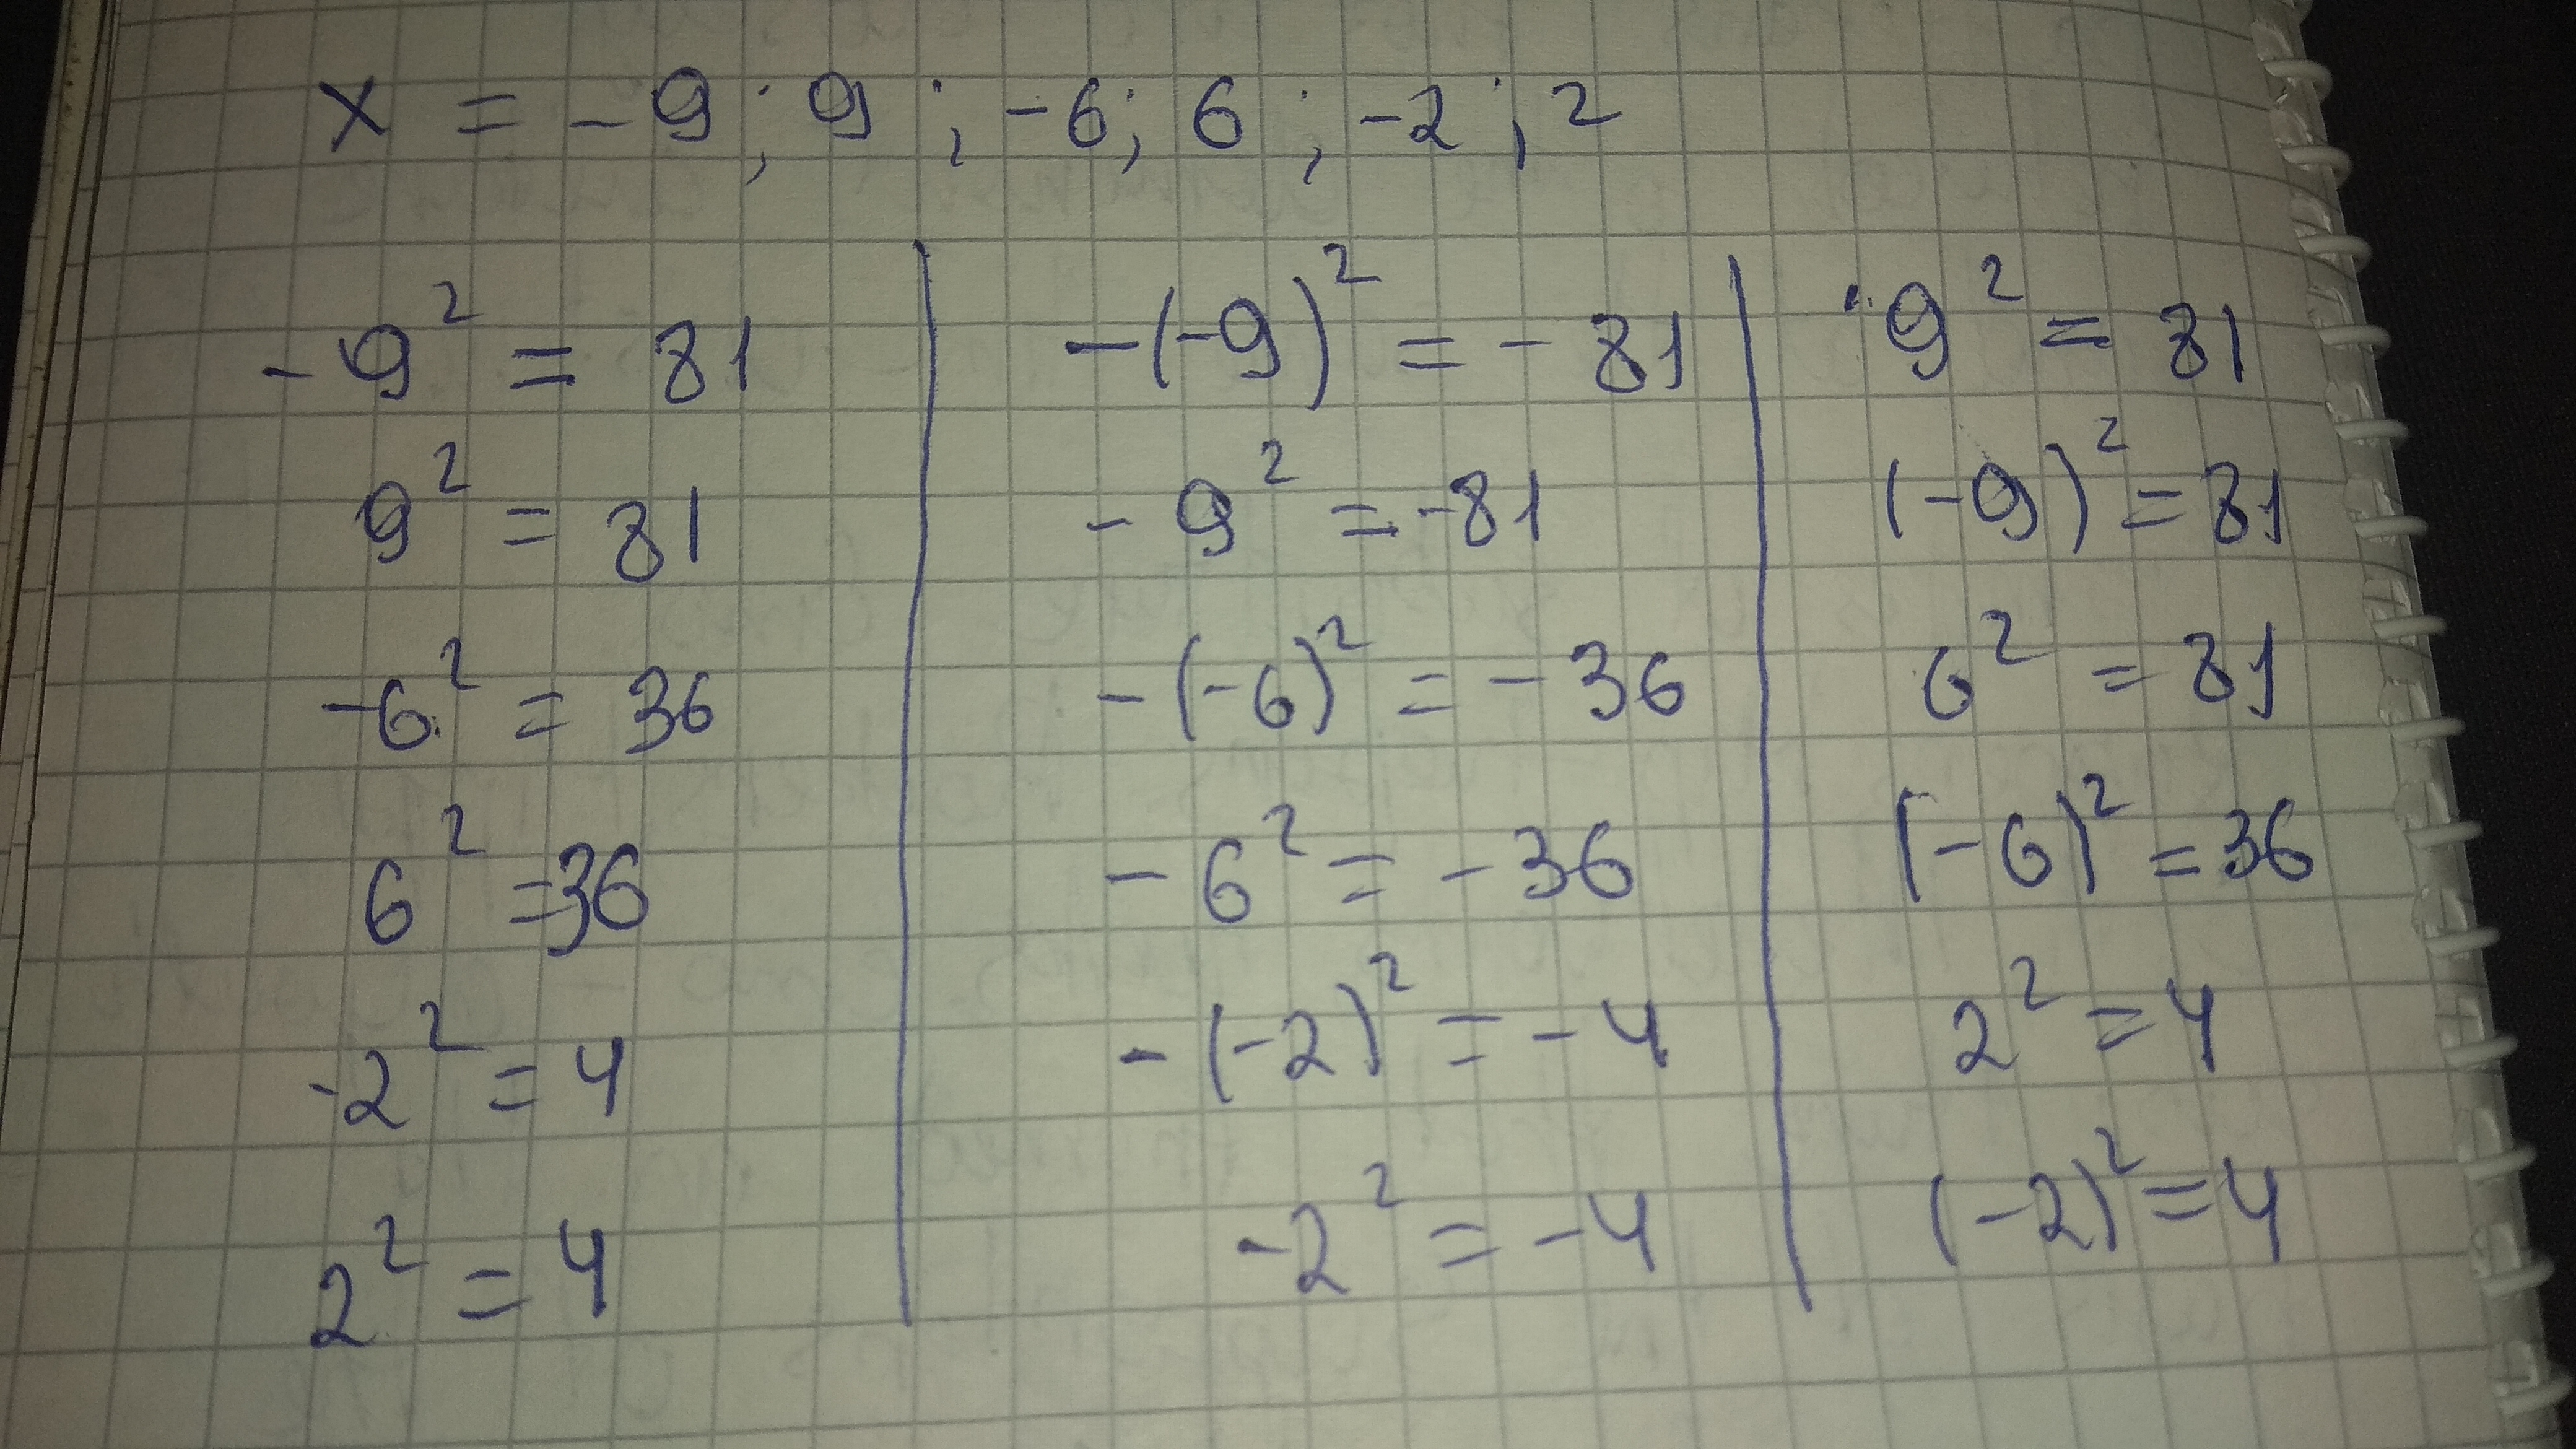 x = -9; 9; -6; 6; -2; 2
-9² = 81
9² = 81
-6² = 36
6² = 36
-2² = 4
2² = 4
-(-9)² = -81
-9² = -81
-(-6)² = -36
-6² = -36
-(-2)² = -4
-2² = -4
9² = 81
(-9)² = 81
6² = 81
(-6)² = 36
2² = 4
(-2)² = 4